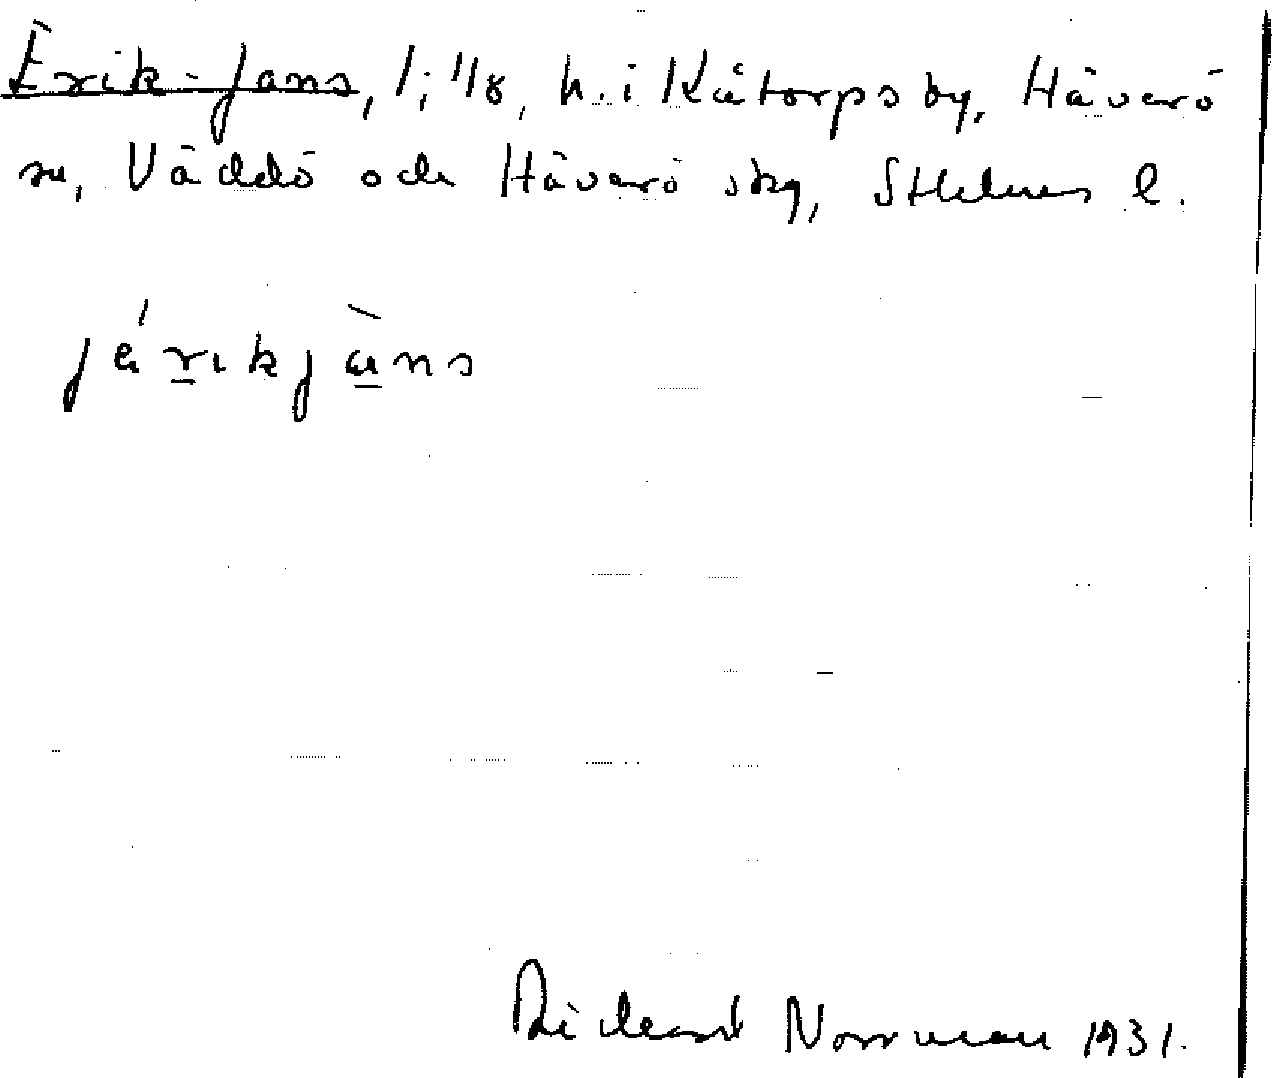 Erik-Jans, 1; 1/8, h. i Kåtorps by, Häverö
sn, Väddö och Häverö skg, Sthlms l.
Rickard Norrman 1931.